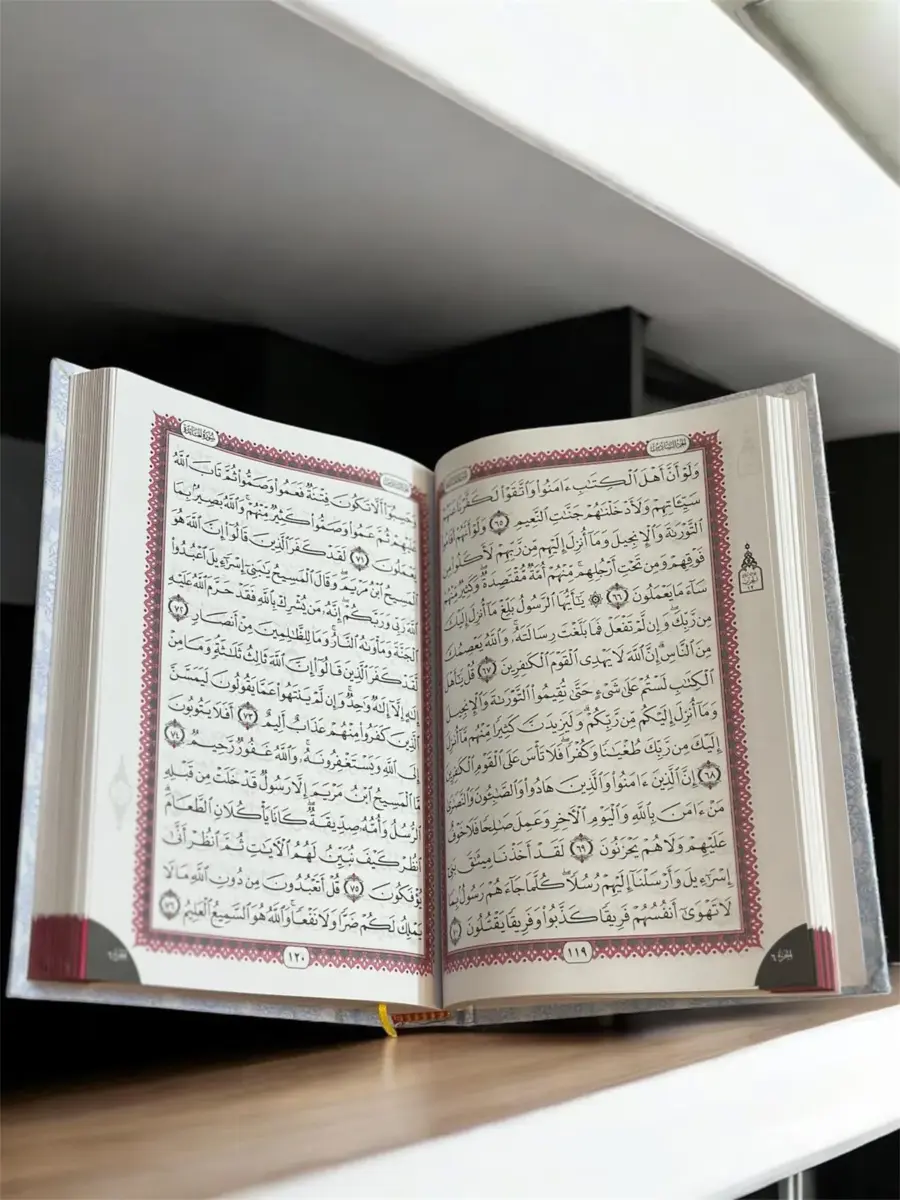 الجزء السادس
وَلَوْ أَنَّ أَهْلَ ٱلْكِتَـٰبِ ءَامَنُوا۟ وَٱتَّقَوْا۟ لَكَفَّرْنَا عَنْهُمْ
سَيِّـَٔاتِهِمْ وَلَأَدْخَلْنَـٰهُمْ جَنَّـٰتِ ٱلنَّعِيمِ ٦٥ وَلَوْ أَنَّهُمْ أَقَامُوا۟
ٱلتَّوْرَىٰةَ وَٱلْإِنجِيلَ وَمَآ أُنزِلَ إِلَيْهِم مِّن رَّبِّهِمْ لَأَكَلُوا۟ مِن
فَوْقِهِمْ وَمِن تَحْتِ أَرْجُلِهِم ۚ مِّنْهُمْ أُمَّةٌ مُّقْتَصِدَةٌ ۖ وَكَثِيرٌ مِّنْهُمْ
سَآءَ مَا يَعْمَلُونَ ٦٦ ۞ يَـٰٓأَيُّهَا ٱلرَّسُولُ بَلِّغْ مَآ أُنزِلَ إِلَيْكَ
مِن رَّبِّكَ ۖ وَإِن لَّمْ تَفْعَلْ فَمَا بَلَّغْتَ رِسَالَتَهُۥ ۚ وَٱللَّهُ يَعْصِمُكَ
مِنَ ٱلنَّاسِ ۗ إِنَّ ٱللَّهَ لَا يَهْدِى ٱلْقَوْمَ ٱلْكَـٰفِرِينَ ٦٧ قُلْ يَـٰٓأَهْلَ
ٱلْكِتَـٰبِ لَسْتُمْ عَلَىٰ شَىْءٍ حَتَّىٰ تُقِيمُوا۟ ٱلتَّوْرَىٰةَ وَٱلْإِنجِيلَ
وَمَآ أُنزِلَ إِلَيْكُم مِّن رَّبِّكُمْ ۗ وَلَيَزِيدَنَّ كَثِيرًا مِّنْهُم مَّآ أُنزِلَ
إِلَيْكَ مِن رَّبِّكَ طُغْيَـٰنًا وَكُفْرًا ۖ فَلَا تَأْسَ عَلَى ٱلْقَوْمِ ٱلْكَـٰفِرِينَ
٦٨ إِنَّ ٱلَّذِينَ ءَامَنُوا۟ وَٱلَّذِينَ هَادُوا۟ وَٱلصَّـٰبِـُٔونَ وَٱلنَّصَـٰرَىٰ
مَنْ ءَامَنَ بِٱللَّهِ وَٱلْيَوْمِ ٱلْـَٔاخِرِ وَعَمِلَ صَـٰلِحًا فَلَا خَوْفٌ
عَلَيْهِمْ وَلَا هُمْ يَحْزَنُونَ ٦٩ لَقَدْ أَخَذْنَا مِيثَـٰقَ بَنِىٓ
إِسْرَٰٓءِيلَ وَأَرْسَلْنَآ إِلَيْهِمْ رُسُلًا ۖ كُلَّمَا جَآءَهُمْ رَسُولٌۢ بِمَا
لَا تَهْوَىٰٓ أَنفُسُهُمْ فَرِيقًا كَذَّبُوا۟ وَفَرِيقًا يَقْتُلُونَ ٧٠
١١٩
الجزء ٦
سورة المائدة
وَحَسِبُوٓا۟ أَلَّا تَكُونَ فِتْنَةٌ فَعَمُوا۟ وَصَمُّوا۟ ثُمَّ تَابَ ٱللَّهُ
عَلَيْهِمْ ثُمَّ عَمُوا۟ وَصَمُّوا۟ كَثِيرٌ مِّنْهُمْ ۚ وَٱللَّهُ بَصِيرٌۢ بِمَا
يَعْمَلُونَ ٧١ لَقَدْ كَفَرَ ٱلَّذِينَ قَالُوٓا۟ إِنَّ ٱللَّهَ هُوَ
ٱلْمَسِيحُ ٱبْنُ مَرْيَمَ ۖ وَقَالَ ٱلْمَسِيحُ يَـٰبَنِىٓ إِسْرَٰٓءِيلَ ٱعْبُدُوا۟
ٱللَّهَ رَبِّى وَرَبَّكُمْ ۖ إِنَّهُۥ مَن يُشْرِكْ بِٱللَّهِ فَقَدْ حَرَّمَ ٱللَّهُ عَلَيْهِ
ٱلْجَنَّةَ وَمَأْوَىٰهُ ٱلنَّارُ ۖ وَمَا لِلظَّـٰلِمِينَ مِنْ أَنصَارٍ ٧٢
لَّقَدْ كَفَرَ ٱلَّذِينَ قَالُوٓا۟ إِنَّ ٱللَّهَ ثَالِثُ ثَلَـٰثَةٍ ۘ وَمَا مِنْ
إِلَـٰهٍ إِلَّآ إِلَـٰهٌ وَٰحِدٌ ۚ وَإِن لَّمْ يَنتَهُوا۟ عَمَّا يَقُولُونَ لَيَمَسَّنَّ
ٱلَّذِينَ كَفَرُوا۟ مِنْهُمْ عَذَابٌ أَلِيمٌ ٧٣ أَفَلَا يَتُوبُونَ
إِلَى ٱللَّهِ وَيَسْتَغْفِرُونَهُۥ ۚ وَٱللَّهُ غَفُورٌ رَّحِيمٌ ٧٤
مَّا ٱلْمَسِيحُ ٱبْنُ مَرْيَمَ إِلَّا رَسُولٌ قَدْ خَلَتْ مِن قَبْلِهِ
ٱلرُّسُلُ وَأُمُّهُۥ صِدِّيقَةٌ ۖ كَانَا يَأْكُلَانِ ٱلطَّعَامَ ۗ
ٱنظُرْ كَيْفَ نُبَيِّنُ لَهُمُ ٱلْـَٔايَـٰتِ ثُمَّ ٱنظُرْ أَنَّىٰ
يُؤْفَكُونَ ٧٥ قُلْ أَتَعْبُدُونَ مِن دُونِ ٱللَّهِ مَا لَا
يَمْلِكُ لَكُمْ ضَرًّا وَلَا نَفْعًا ۚ وَٱللَّهُ هُوَ ٱلسَّمِيعُ ٱلْعَلِيمُ ٧٦
١٢٠
الجزء ٦